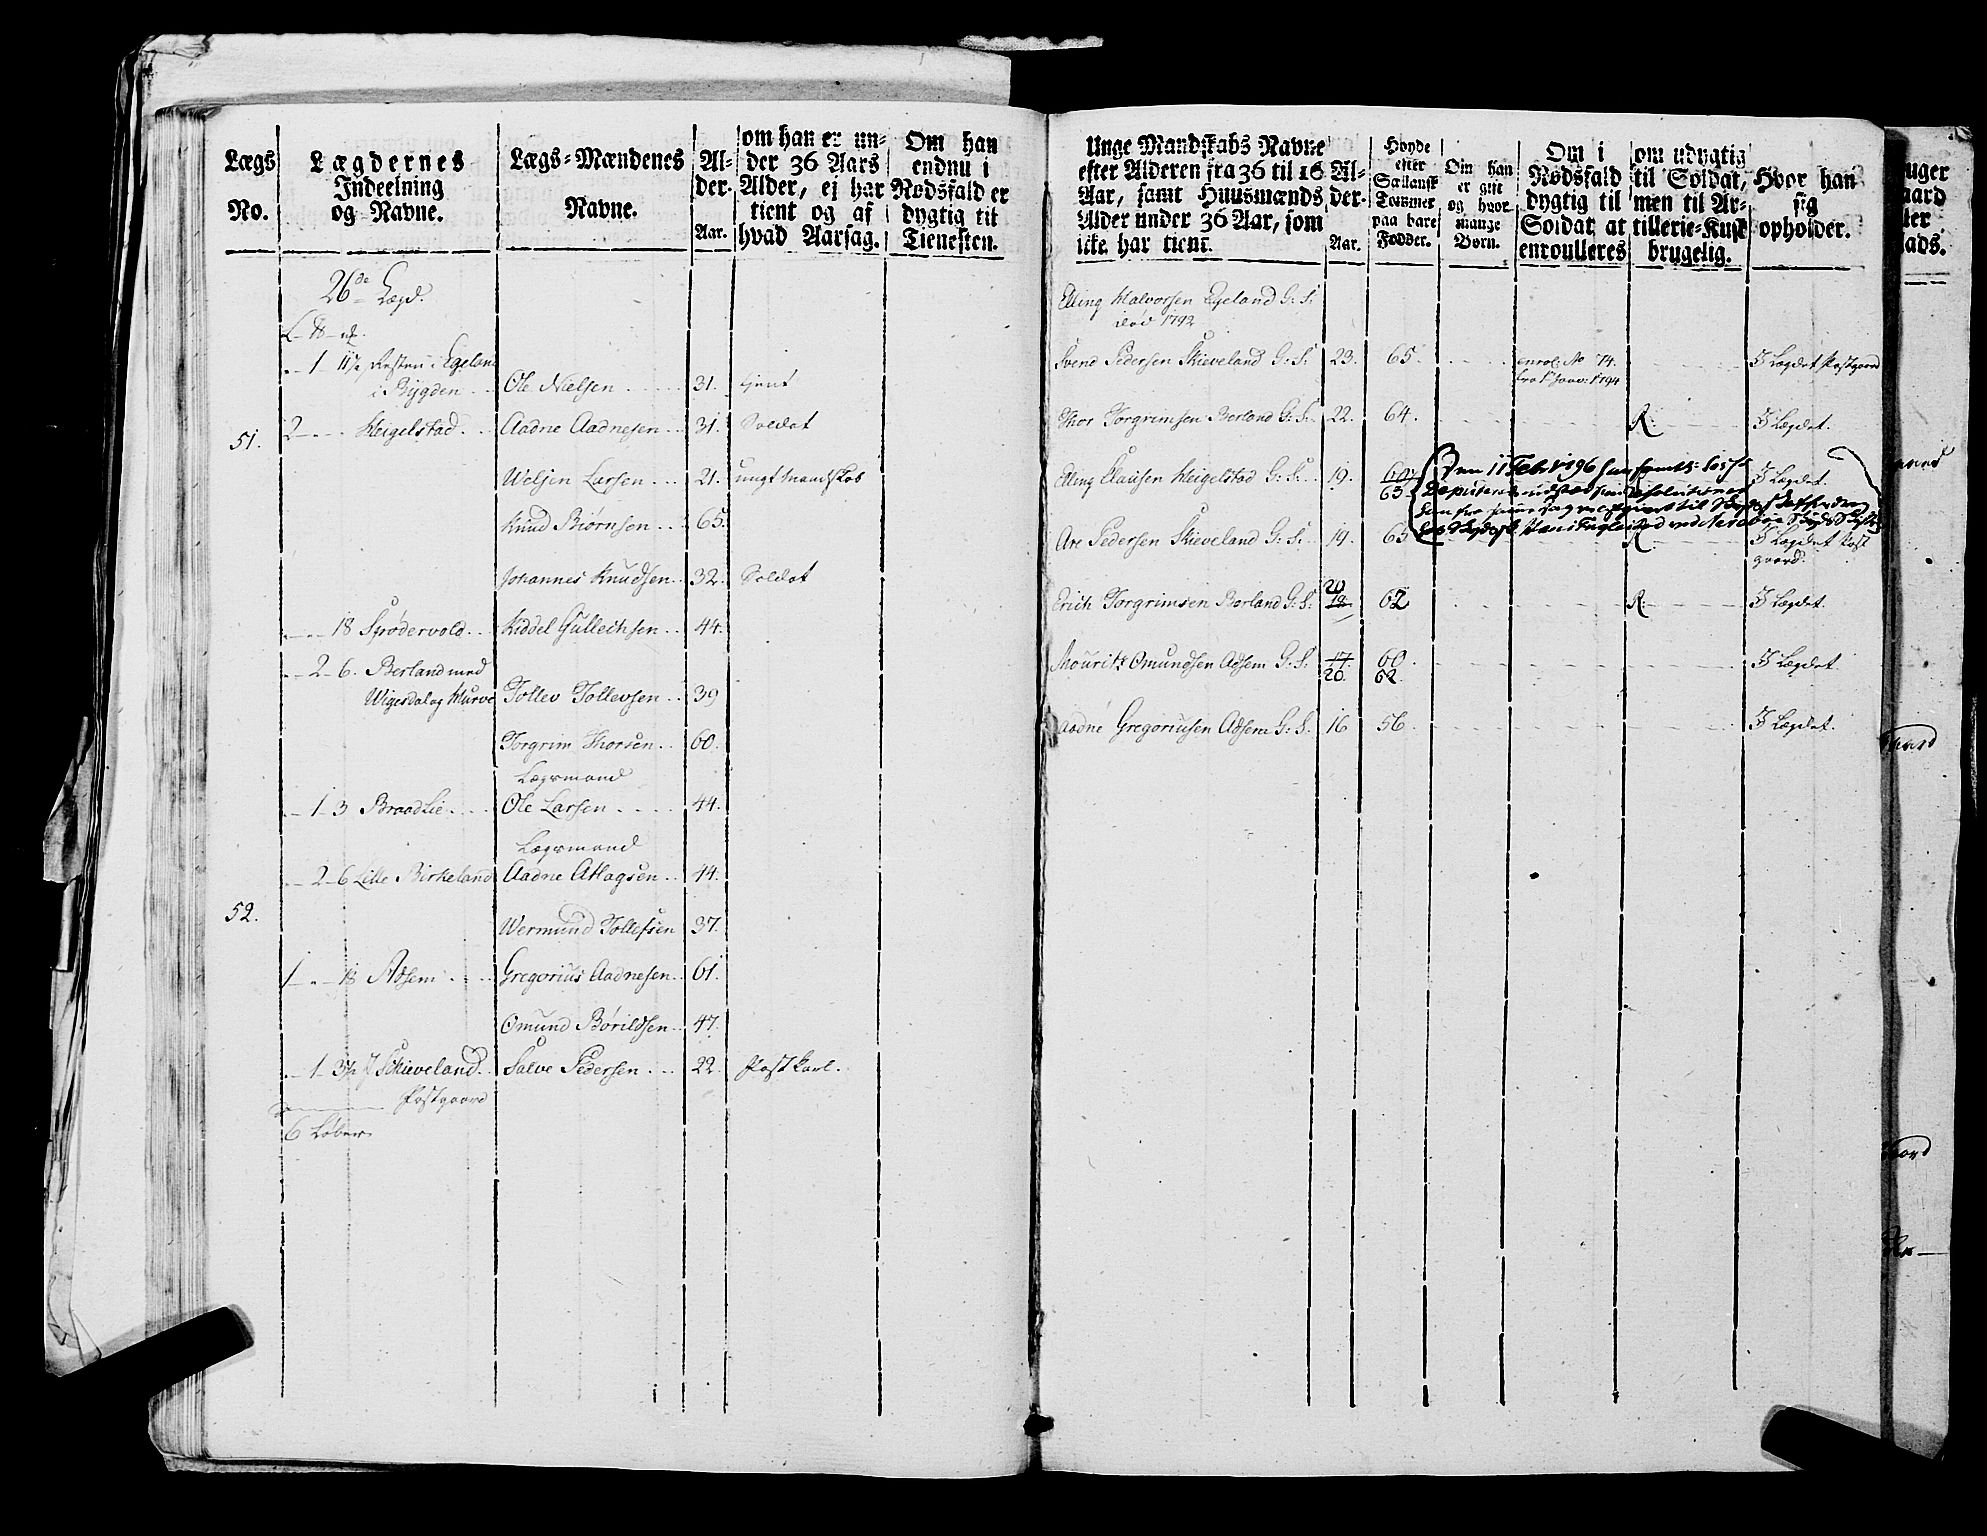 Lægs
No.
Lægdernes
Indeelning
og Navne.
Lægs-Mændenes
Navne.
Al-
der.
Aar.
om han er un-
der 36 Aars
Alder, ej har
tient og af
hvad Aarsag.
Om han
endnu i
Nødsfald er
dygtig til
Tienesten.
26de Lægd.
1 11½ Resten i Egeland
i Bygden Ole Nielsen 31. tjent
51. 2 Heigelstad Aadne Aadnesen 31. Soldat
Weljen Larsen 21. ungt Mandskab
Knud Biørnsen 65.
Johannes Knudsen 32. Soldat
18 Sprødervold Kiddel Gulleichsen 44.
2 6. Berland med
Wigesdal og Murve Tollev Tollevsen 39
Torgrim Thorsen 60.
Lægsmand
1 3 Braadlie Ole Larsen 44.
Lægsmand
2 6 Lille Birkeland Aadne Attagsen 44.
52.
Wermund Tollefsen 37.
1 18 Adsem Gregorius Aadnesen 61.
Omund Børildsen 47.
1 3½ Schieveland Salve Pedersen 22. Postkarl.
Postgaard
6 Løber
Unge Mandskabs Navne
efter Alderen fra 36 til 16
Aar, samt Huusmænds
Alder under 36 Aar, som
icke har tient.
Al-
der.
Aar.
Høyde
efter
Siellansk
Tommer
paa bare
Fødder.
Om han
er gift
og hvor
mange
Børn.
Om i
Nødsfald
dygtig til
Soldat at
enroulleres
om udygtig
til Soldat,
men til Ar-
tillerie-Kusk
brugelig.
Hvor han
sig
opholder.
Elling Halvorsen Egeland G: S:
död 1792
Svend Pedersen Skieveland G: S: 23. 65. enrol: No 74. I Lægdet Postgaard
fra 1 Janv: 1794
Thor Torgrimsen Berland G: S: 22. 64. R: I Lægdet.
Elling Clausen Heigelstad G: S: 19. 60 Den 11 Febr 1796 I Lægdet.
63.
Are Pedersen Skieveland G: S: 19. 63 R: I Lægdet Post
gaard.
20
Erich Torgrimsen Berland G: S: 19 62 R: I Lægdet.
Mouritz Omundsen Adsem G: S. 17. 60. I Lægdet
20. 62.
Aadne Gregoriusen Adsem G: S. 16 56. I Lægdet.